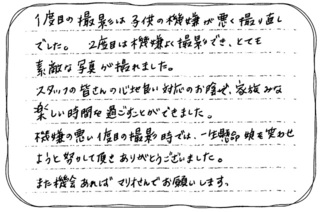 1度目の撮影は子供の機嫌が悪く撮り直し
でした。 2度目は機嫌よく撮影でき、とても
素敵な写真が撮れました。
スタッフの皆さんの心地良い対応のお陰で、家族みな
楽しい時間を過ごすことができました。
機嫌の悪い1度目の撮影時では、一生懸命娘を笑わせ
ようと努力して頂きありがとうございました。
また機会あればマリオせんでお願いします。